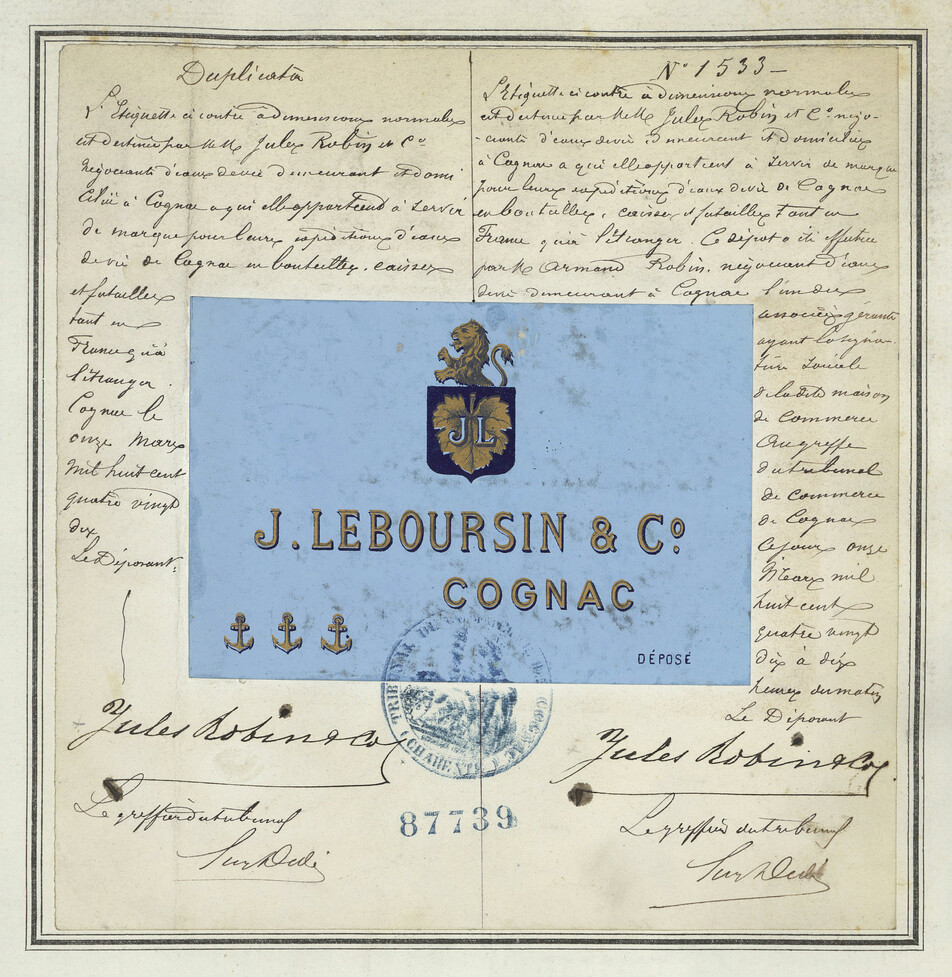 Duplicata
L'Etiquette ci contre à dimensions normales
est destinée par MM Jules Robin et Co
négociants d'eaux de vie demeurant et domi
ciliés à Cognac a qui elle appartient à servir
de marque pour leurs expéditions d'eaux
de vie de Cognac en bouteilles, caisses
et futailles
tant en
France qu'à
l'étranger.
Cognac le
onze Mars
mil huit cent
quatre vingt
dix
Le Déposant:
Jules Robin & Co
Le greffier du tribunal
No 1533
L'Etiquette ci contre à dimensions normales
est destinée par MM. Jules Robin et Co négo-
ciants d'eaux de vie, demeurant et domiciliés
à Cognac a qui elle appartient à servir de marque
pour leurs expéditions d'eaux de vie de Cognac
en bouteilles, caisses et futailles tant en
France qu'à l'étranger. Ce dépot a été effectué
par M Armand Robin, négociant d'eaux
de vie demeurant à Cognac l'un des
associés gérants
ayant la signa-
ture sociale
de la dite maison
de commerce
Au greffe
du tribunal
de commerce
de Cognac
ce jour onze
Mars mil
huit cent
quatre vingt
dix à dix
heures du matin
Le Déposant
Jules Robin & Co
Le greffier du tribunal
JL
J. LEBOURSIN & Co
COGNAC
DÉPOSÉ
TRIBUNAL DE
(CHARENTE)
87739